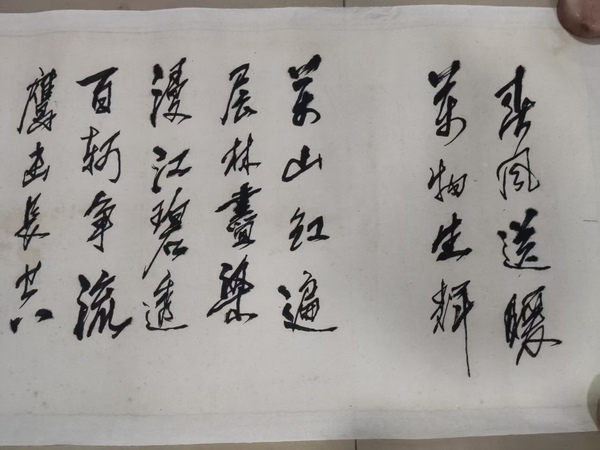 春风送暖
萬物生輝
萬山红遍
层林盡染
漫江碧透
百舸争流
鷹击長空